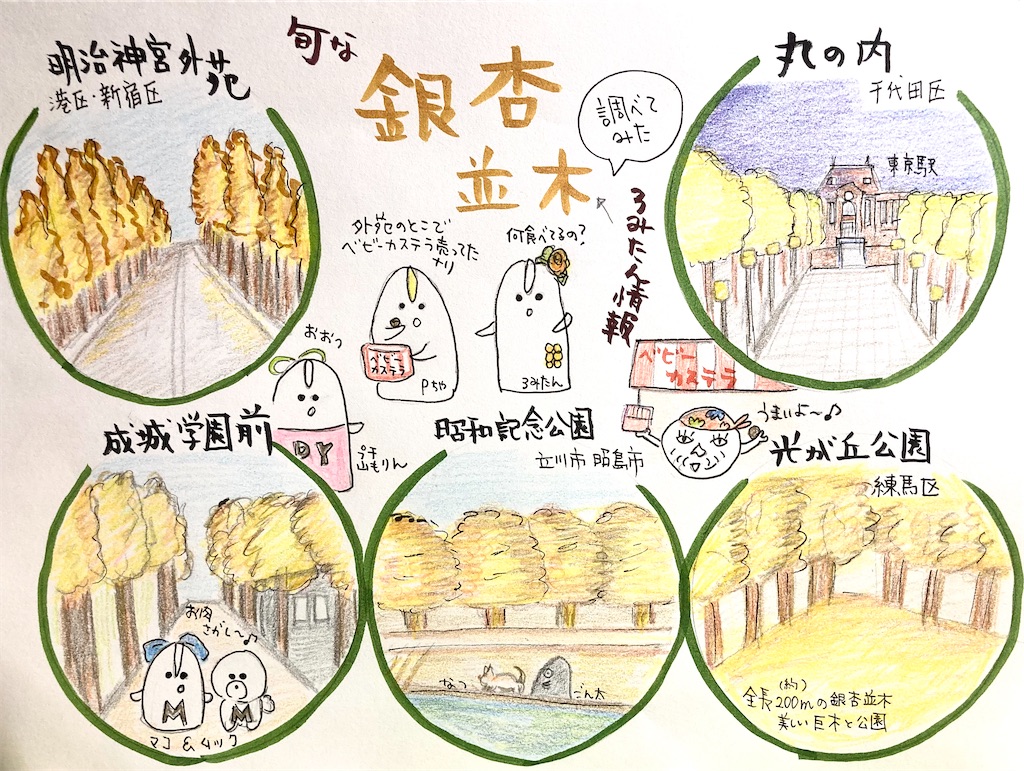 旬な
銀杏
並木
調べて
みた
ろみたん情報
明治神宮外苑
港区・新宿区
丸の内
千代田区
東京駅
外苑のとこで
ベビーカステラ売ってた
ナリ
何食べてるの?
ベビー
カステラ
Pちゃ
ろみたん
おおっ
DY
プチ
山もりん
ベビー
カステラ
うまいよ〜♪
成城学園前
お肉
さがし〜♪
M
M
マコ&ムック
昭和記念公園
立川市 昭島市
なつ
ごん太
光が丘公園
練馬区
全長(約)200mの銀杏並木
美しい巨木と公園